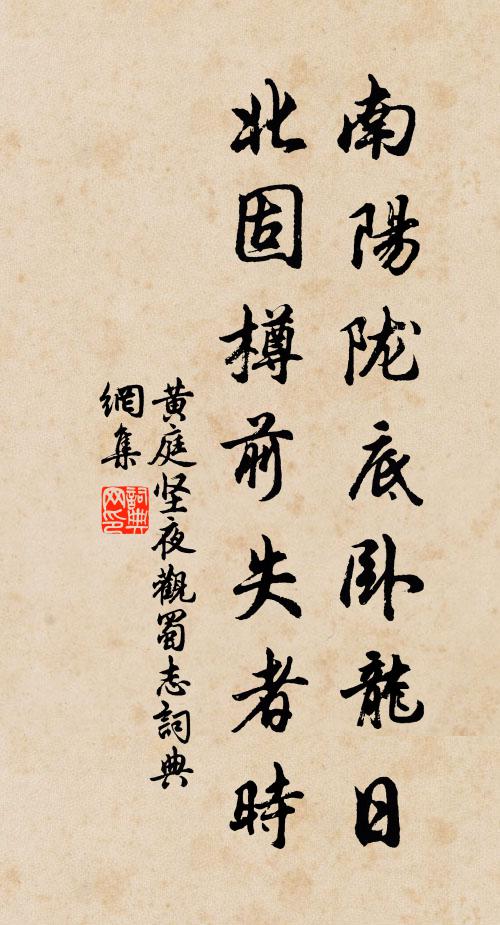 南陽陇底卧龍日
北固樽前失者時
黄庭坚夜觀蜀志詞典
網集
詞典
网印